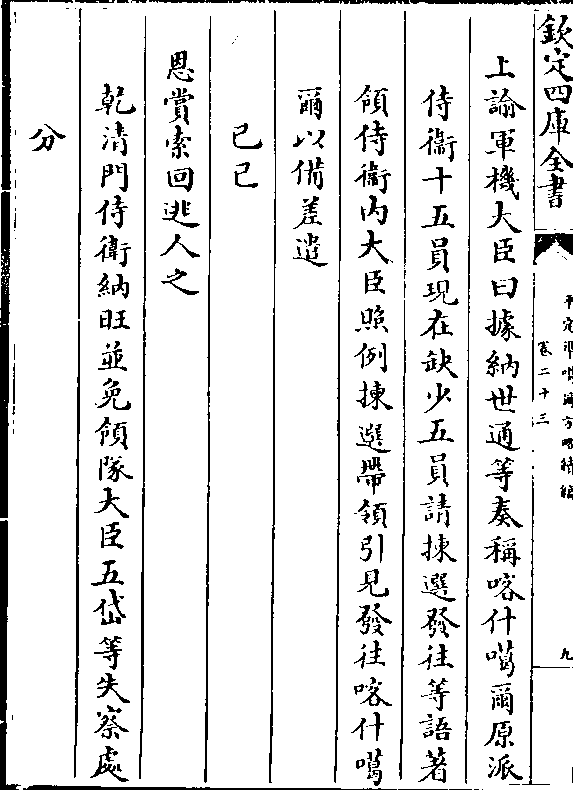 欽定四庫全書
平定準噶爾方略續編
卷二十三
九
上諭軍機大臣曰據納世通等奏稱喀什噶爾原派
侍衛十五員現在缺少五員請揀選發往等語著
領侍衛內大臣照例揀選帶領引見發往喀什噶
爾以備差遣
己巳
恩賞索回逃人之
乾清門侍衛納旺並免領隊大臣五岱等失察處
分